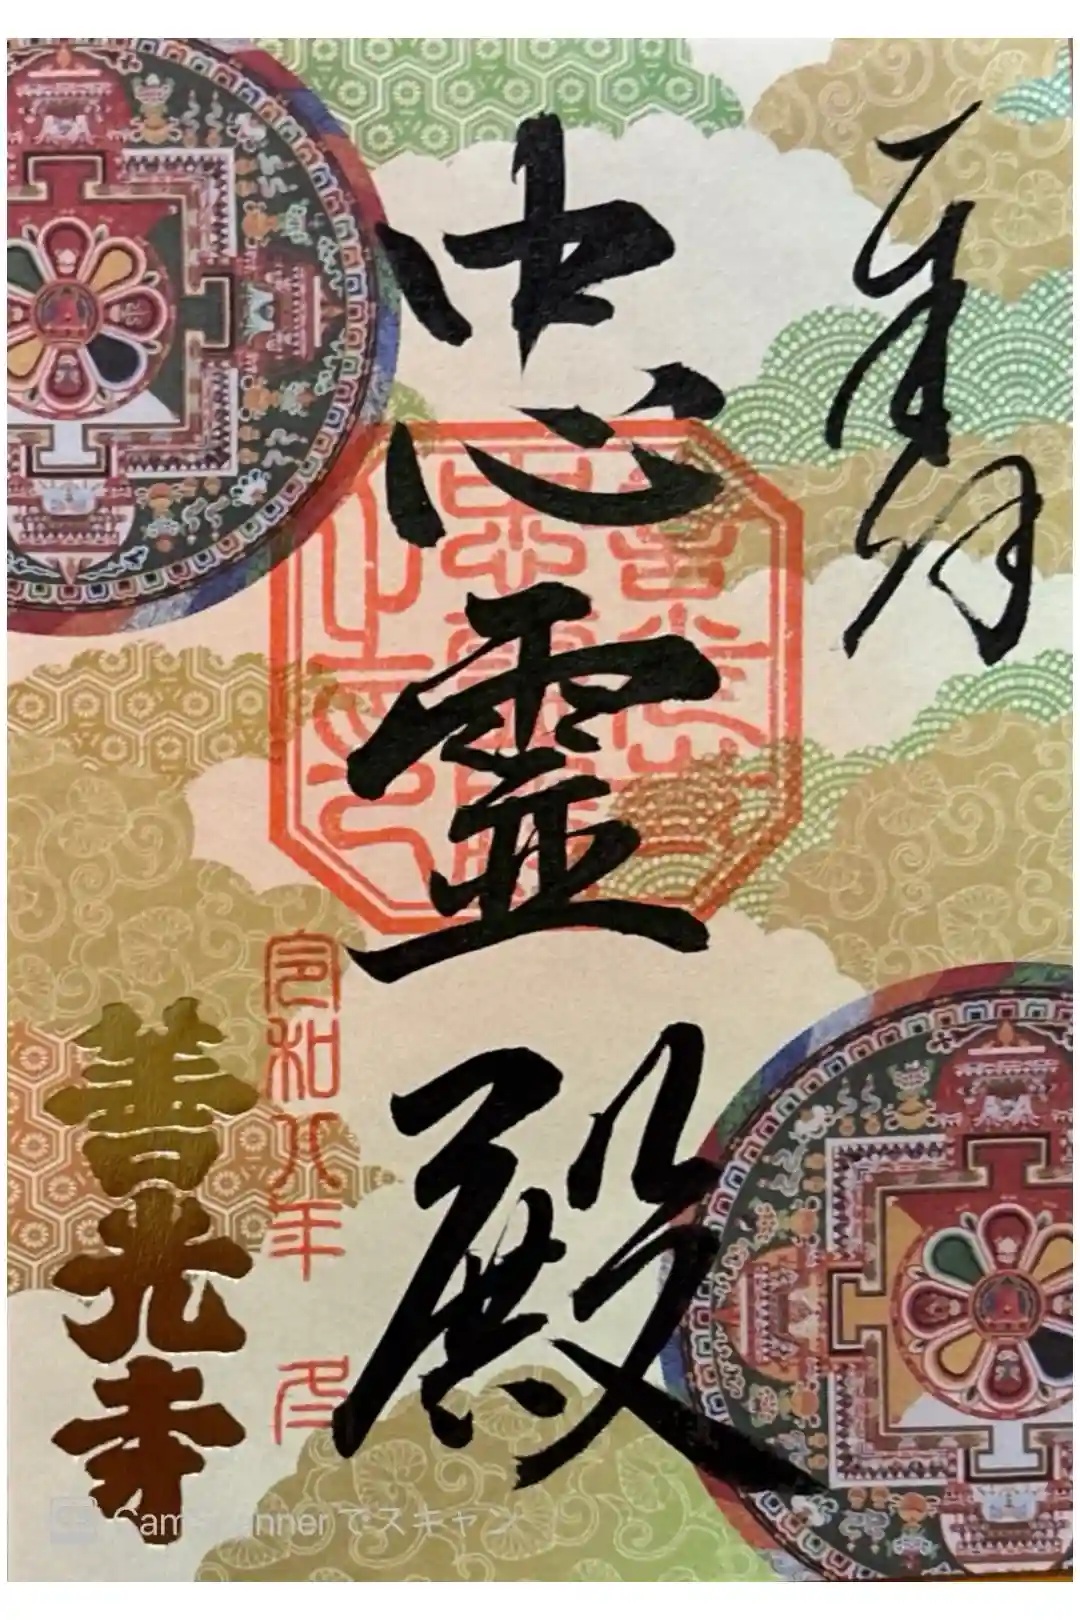 奉拝
忠霊殿
令和八年
善光寺
CamScanner でスキャン